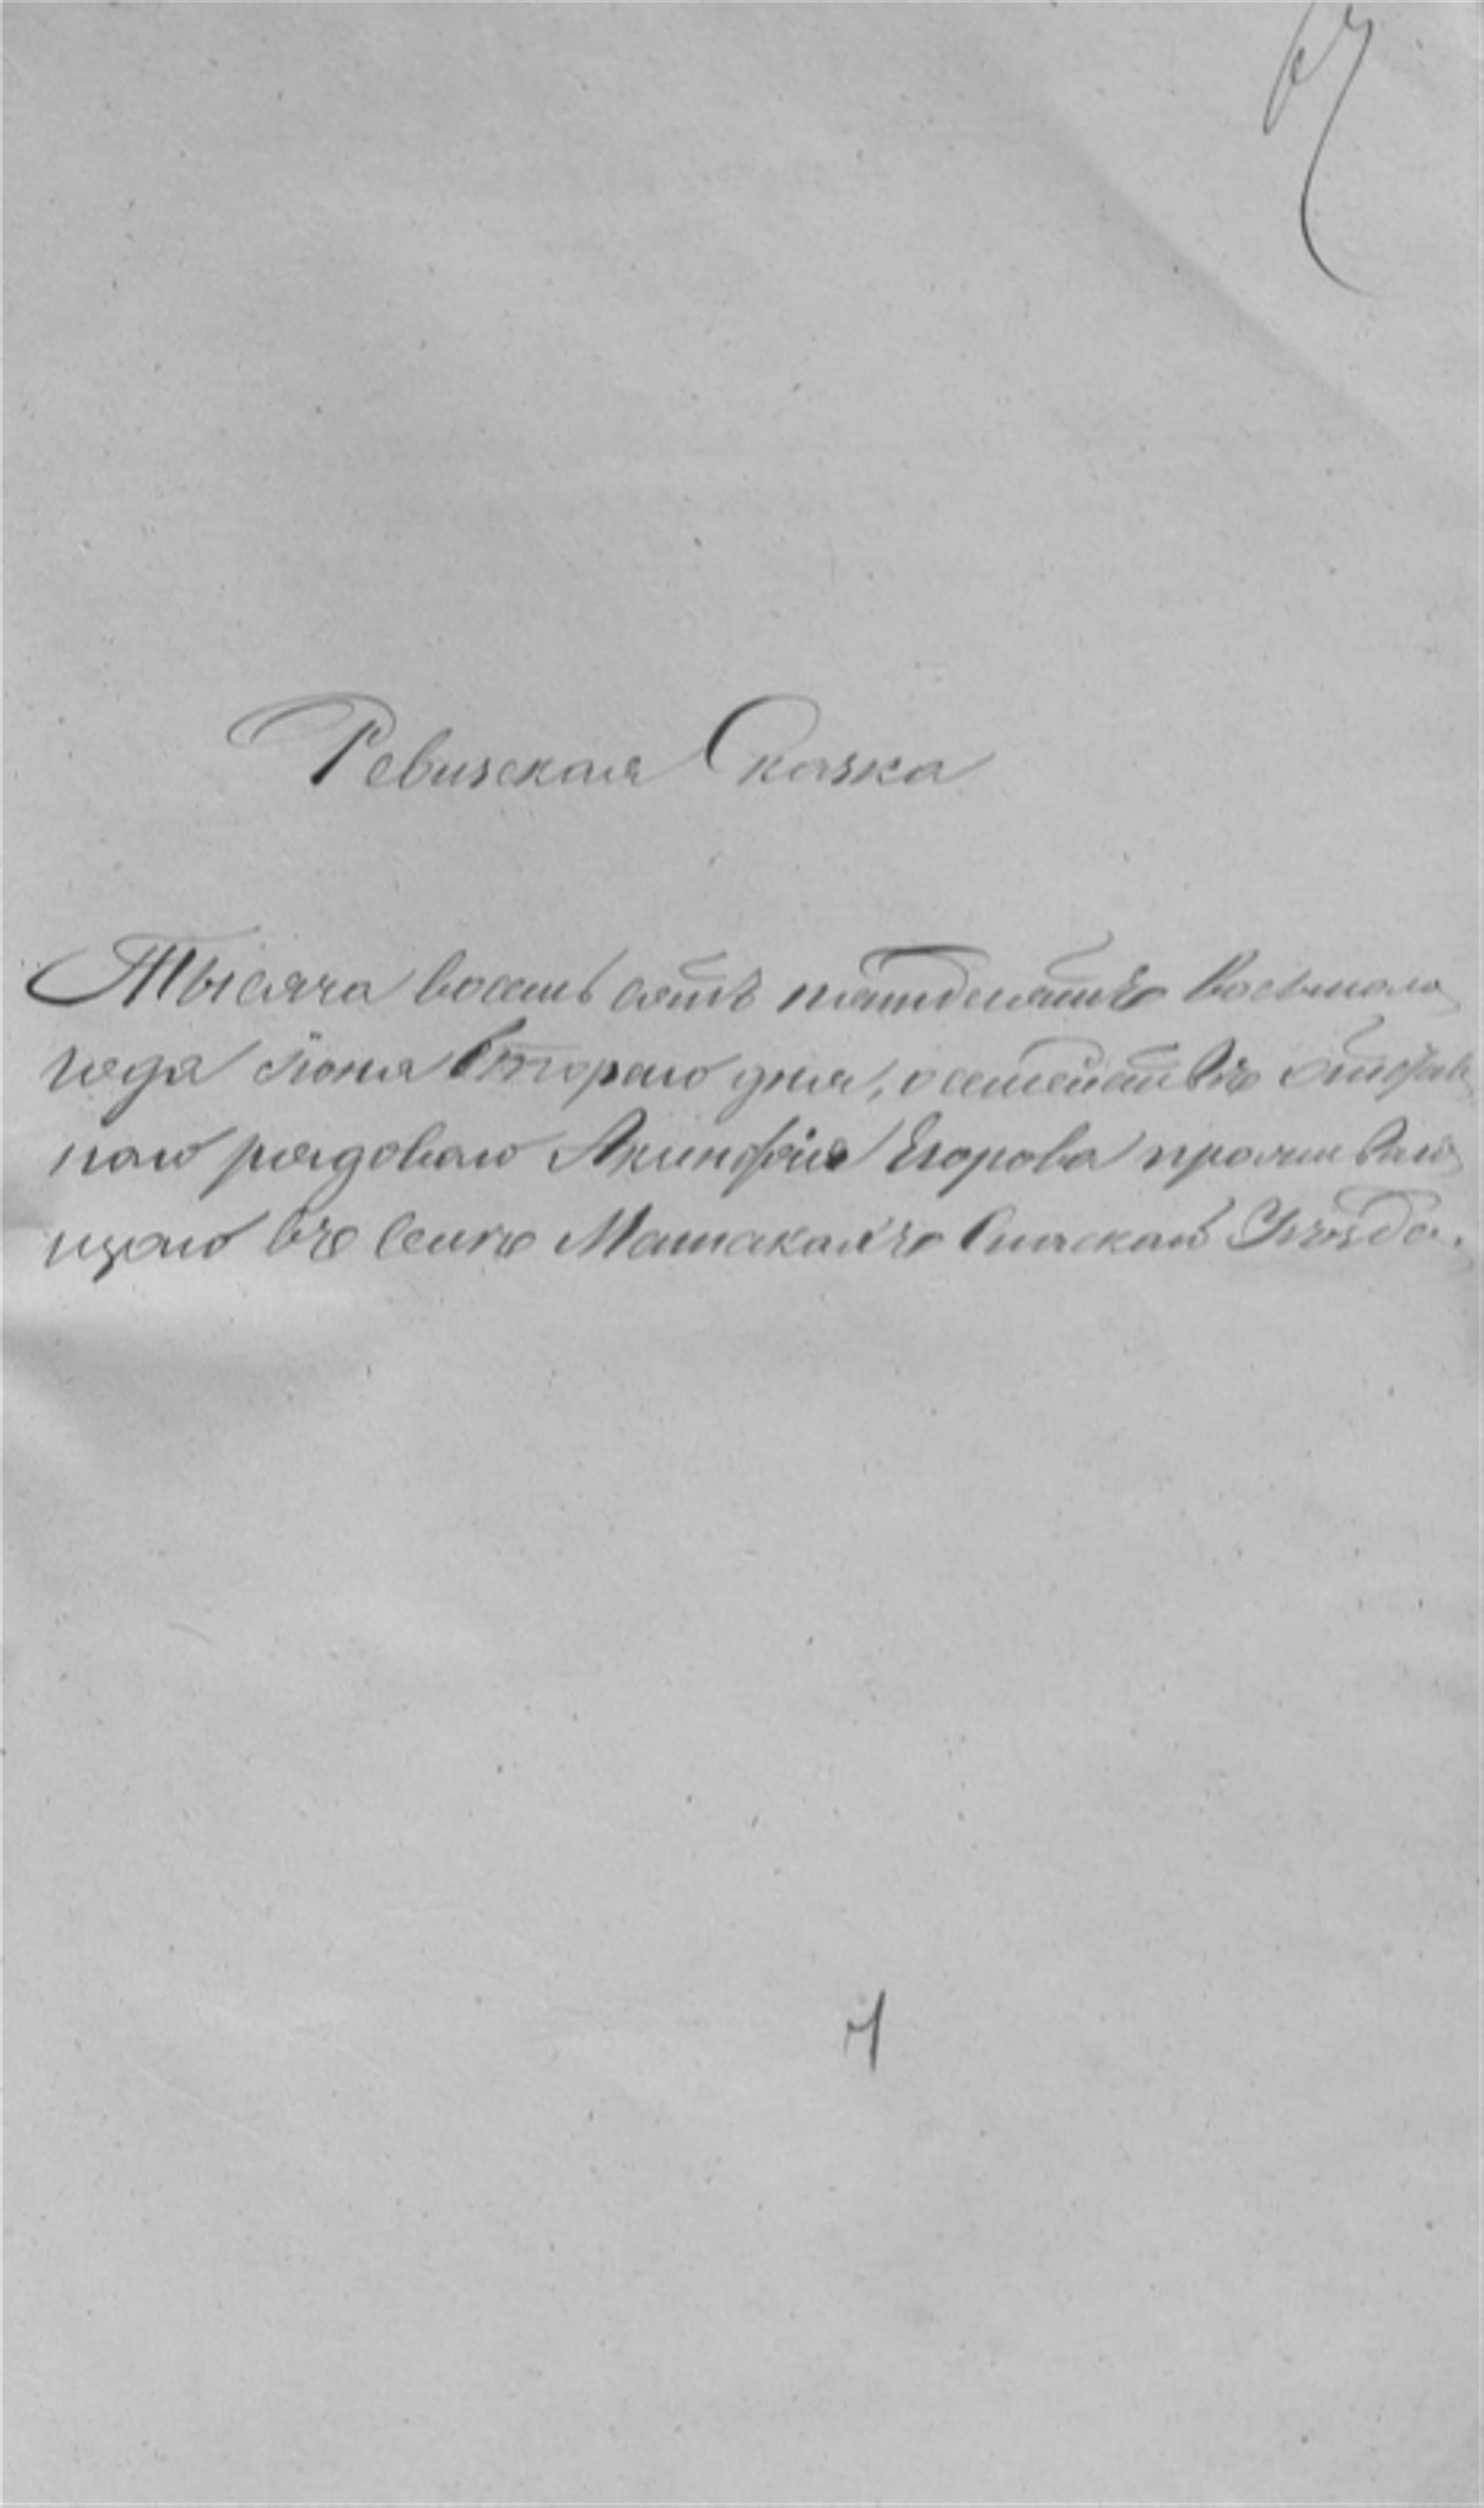 67
Ревизская Сказка
Тысяча восемь сотъ пятидесятъ восьмого
года Іюня второго дня, о семействѣ отстав
наго рядоваго Акинфія Егорова прожываю
щаго въ селѣ Матакахъ Спаскаго Уѣзда.